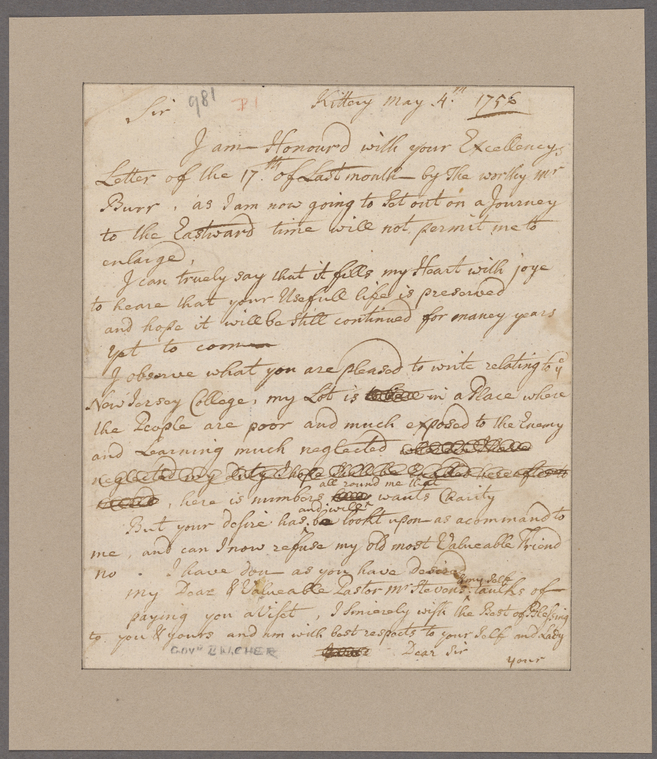 981 B1
Sir Kittery May 4th 1756
I am Honour'd with your Excellency's
Letter of the 17th of Last month by the worthy Mr
Burr, as I am now going to Set out on a Journey
to the Eastward time will not permit me to
enlarge,
I can truely say that it fills my Heart with joye
to heare that your Usefull life is preserved
and hope it will be Still continued for maney years
yet to come
I observe what you are pleased to write relating to ye
New Jersey College, my Lot is in a Place where
the People are poor and much exposed to the Enemy
and Learning much neglected
neglected my Duty I hope hereafter
all round me that
, here is numbers wants Charity
and will
But your desire has be lookt upon as a command to
me, and can I now refuse my old most Valueable Friend
no. I have Don as you have Desired
& my self
my Dear & Valueable Pastor Mr Stevens talks of
paying you a Viset, I sincerely wish the Best of Blessing
to you & yours and am with best respects to your Self and Lady
Dear Sir
your
GOVR BELCHER